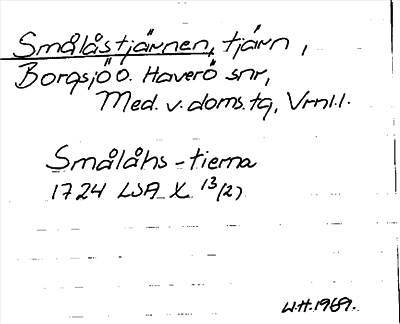 Smålåstjärnen, tjärn,
Borgsjö o. Haverö snr,
Med. v. doms. tg, Vrnl.l.
Smålåhs-tierna
1724 LSA X 13/(2)
W.H. 1969.